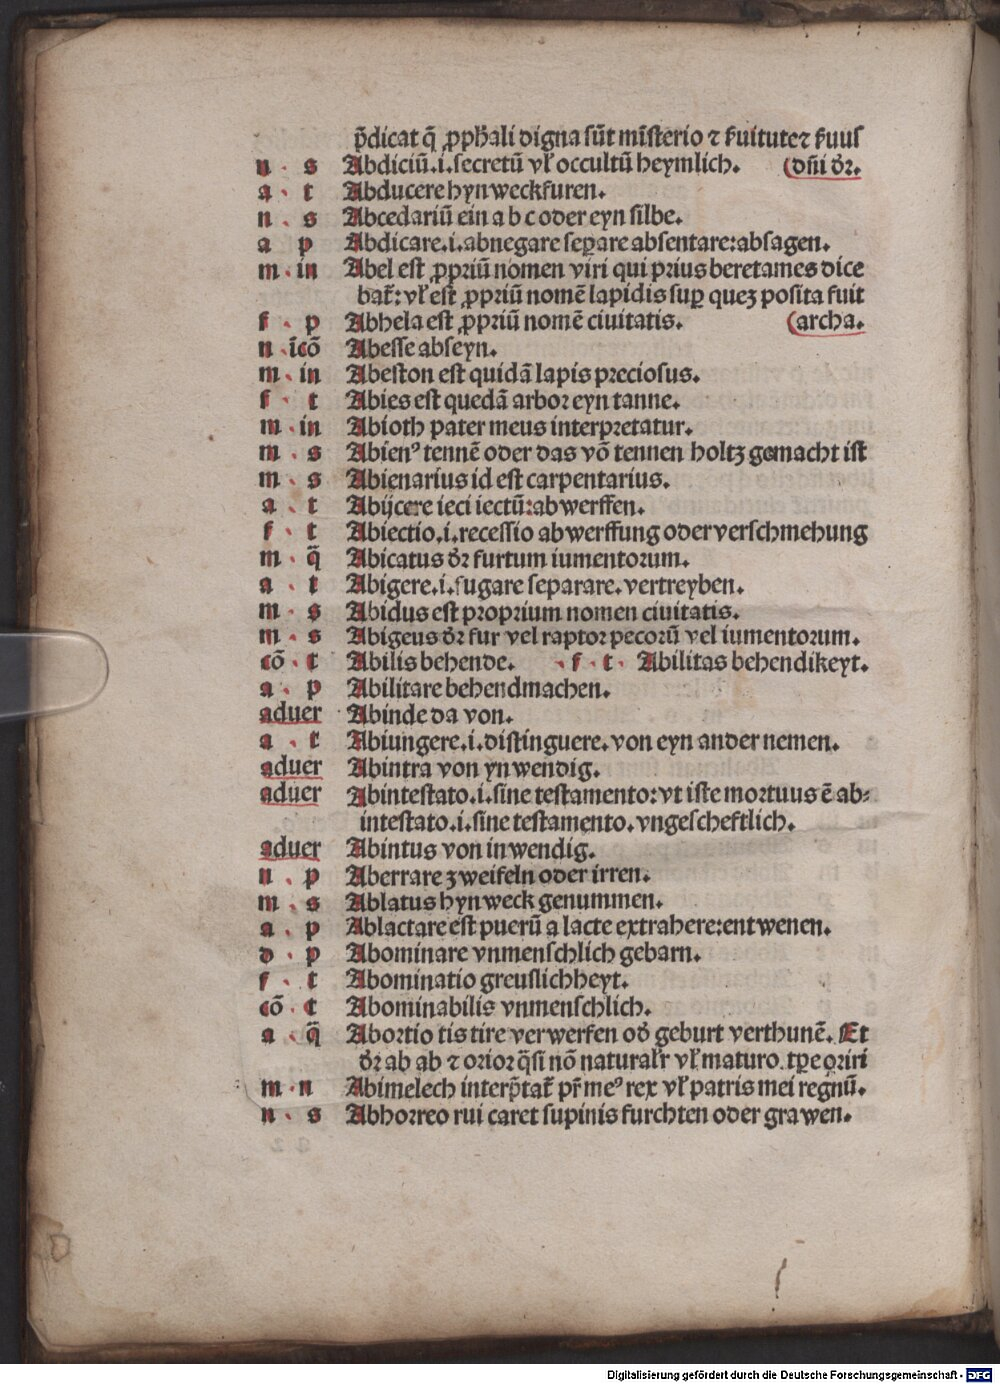 p̄dicat q̄ ꝓpħali digna sūt mīsterio ⁊ ẜuitute⁊ ẜuus
n · s Abdiciū.i.secretū vł occultū heymlich. (dn̄i dr̄.
a · t Abducere hyn weckfuren.
n · s Abcedariū ein a b c oder eyn silbe.
a p Abdicare.i.abnegare seꝑare absentare:absagen.
m · in Abel est ꝓpriū nomen viri qui prius beretames dice
bat̄: vł est ꝓpriū nomē lapidis suꝑ quez posita fuit
f · p Abhela est ꝓpriū nomē ciuitatis. (archa.
n · īcō Abesse abseyn.
m · in Abeston est quidā lapis preciosus.
f · t Abies est quedā arbor eyn tanne.
m · in Abioth pater meus interpretatur.
m · s Abienꝰ tennē oder das vō tennen holtz gemacht ist
m · s Abienarius id est carpentarius.
a · t Abijcere ieci iectū:abwerffen.
f · t Abiectio.i.recessio abwerffung oder verschmehung
m · q̄ Abicatus dr̄ furtum iumentorum.
a · t Abigere.i.fugare separare.vertreyben.
m · s Abidus est proprium nomen ciuitatis.
m · s Abigeus dr̄ fur vel raptor pecorū vel iumentorum.
cō · t Abilis behende. · f · t · Abilitas behendikeyt.
a · p Abilitare behendmachen.
aduer Abinde da von.
a · t Abiungere.i.distinguere.von eyn ander nemen.
aduer Abintra von ynwendig.
aduer Abintestato.i.sine testamento:vt iste mortuus ē ab⸗
intestato.i.sine testamento.vngescheftlich.
aduer Abintus von inwendig.
n · p Aberrare zweifeln oder irren.
m · s Ablatus hyn weck genummen.
a · p Ablactare est puerū a lacte extrahere:entwenen.
d · p Abominare vnmenschlich gebarn.
f · t Abominatio greuslichheyt.
cō · t Abominabilis vnmenschlich.
a · q̄ Abortio tis tire verwerfen od̓ geburt verthunē. Et
dr̄ ab ab ⁊ orior q̄si nō naturałr vł maturo tꝑe oriri
m · n Abimelech interp̄tat̄ pr̄ meꝰ rex vł patris mei regnū.
n · s Abhorreo rui caret supinis furchten oder grawen.
Digitalisierung gefördert durch die Deutsche Forschungsgemeinschaft - DFG